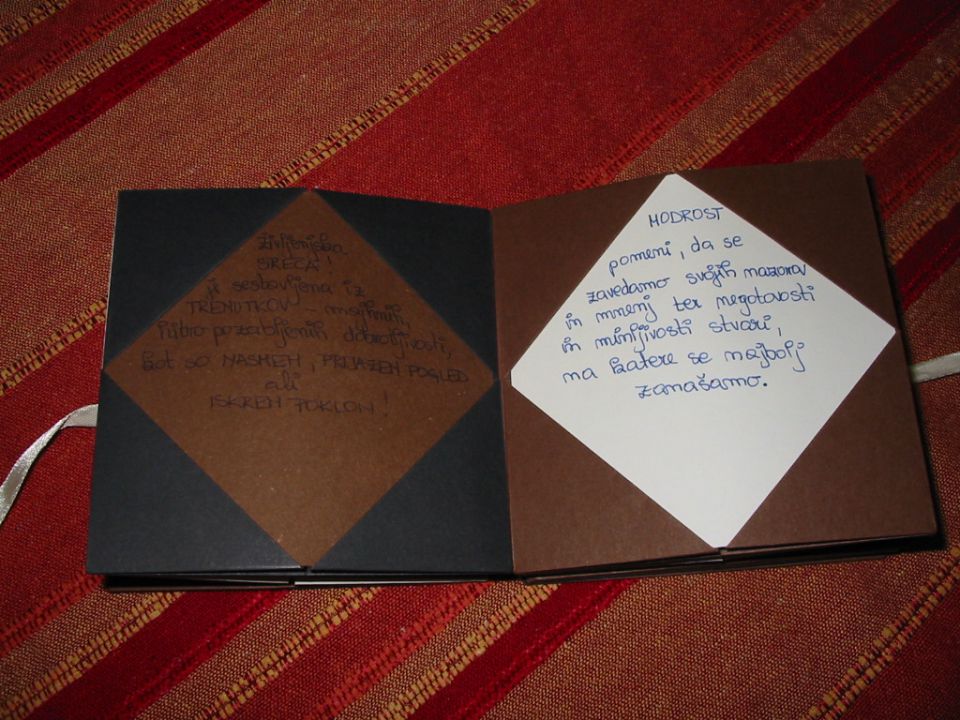 življenjska
SREČA!
je sestavljena iz
TRENUTKOV - majhnih,
hitro pozabljenih dobrotljivosti,
kot so NASMEH, PRIJAZEN POGLED
ali
ISKREN POKLON!
MODROST
pomeni, da se
zavedamo svojih nazorov
in mnenj ter negotovosti
in minljivosti stvari,
na katere se najbolj
zanašamo.